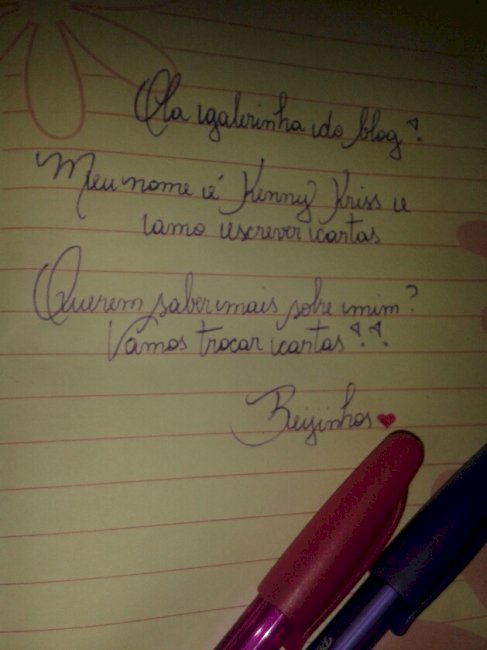 Ola galerinha do blog!
Meu nome é Kenny Kriss e
amo escrever cartas
Querem saber mais sobre mim?
Vamos trocar cartas!!
Beijinhos ❤